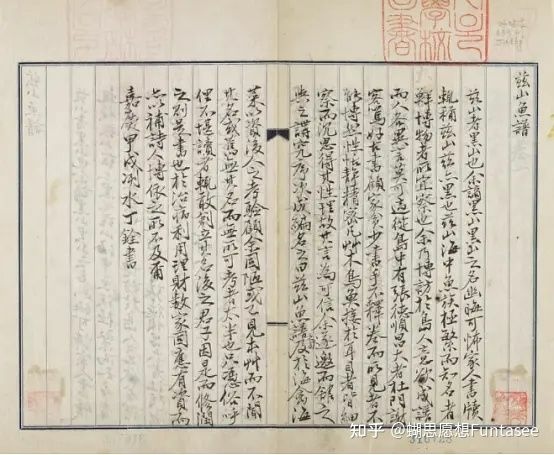 玆山魚譜
玆山者黑山也余謫黑山黑山之名幽晦可怖家人書牘
輒稱玆山玆亦黑也玆山海中魚族極繁而知名者
鮮博物者所宜察也余乃博訪於島人意欲成譜
而人各異言莫可適從島中有張德順昌大者杜門謝
客篤好古書顧家貧少書手不釋卷而所見者不
能博然性恬靜精密凡艸木鳥魚接於耳目者皆細
察而沉思得其性理故其言為可信余遂邀而館之
與之講究序次成編名之曰玆山魚譜旁及於海禽海
菜以資後人之考驗顧余固陋或已見本艸而不聞
其名或舊無其名而無所可考者太半也只憑俗呼
俚不堪讀者輒敢創立其名後之君子因是而修潤
之則是書也於治病利用理財數家固應有資而
亦以補詩人博依之所不及爾
嘉慶甲戌洌水丁銓書
知乎 @蝴思愿想Funtasee